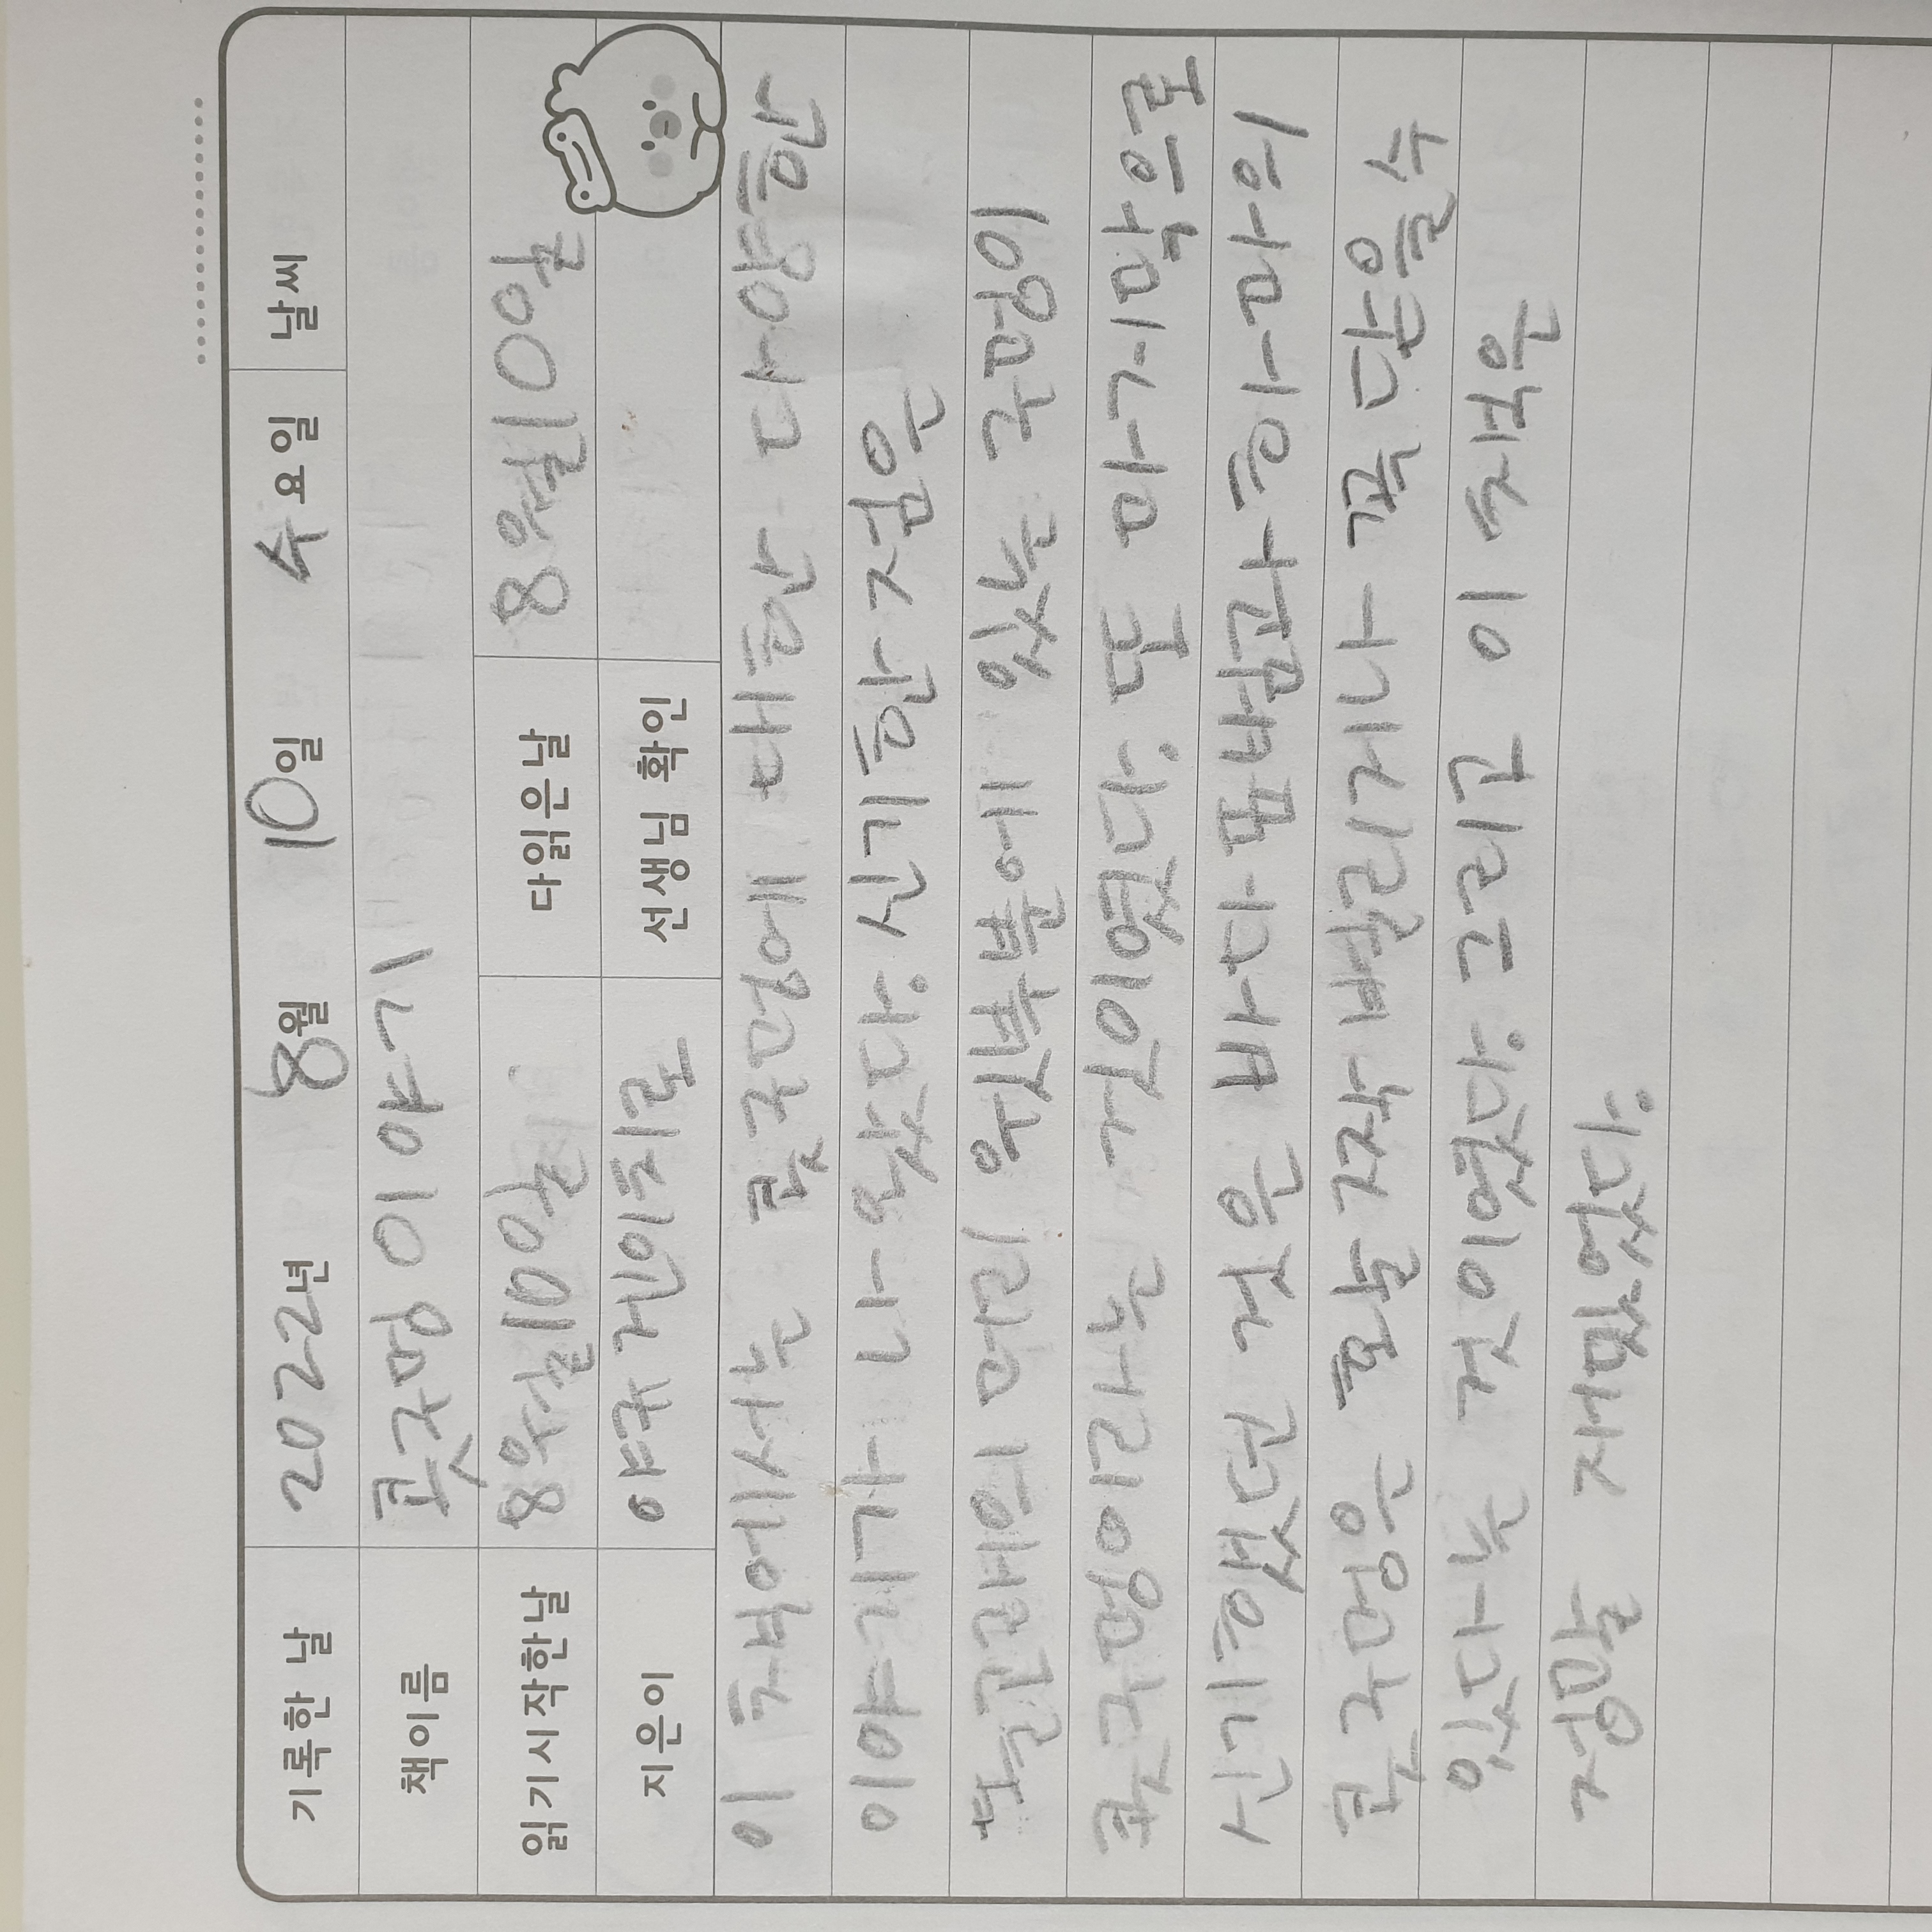 기록한 날 2022년 8월 10일 수요일 날씨
책이름 콧구멍 이야기
읽기시작한날 8월10일 다읽은날 8월10일
지은이 야규 겐이치로 선생님 확인
이 책에서는 콧구멍에 대한 다양한
이야기가 나왔다. 신기한 점은
돌고래의 머리 윗부분에 있는 구멍이
콧구멍이라는 것이였다. 또 마지막으로
신기했던 것은 바다표범과 하마의
콧구멍은 활짝 벌리거나 꼭 닫을 수
있다는 것이였다. 그리고 이 책은
정말 재밌었다.